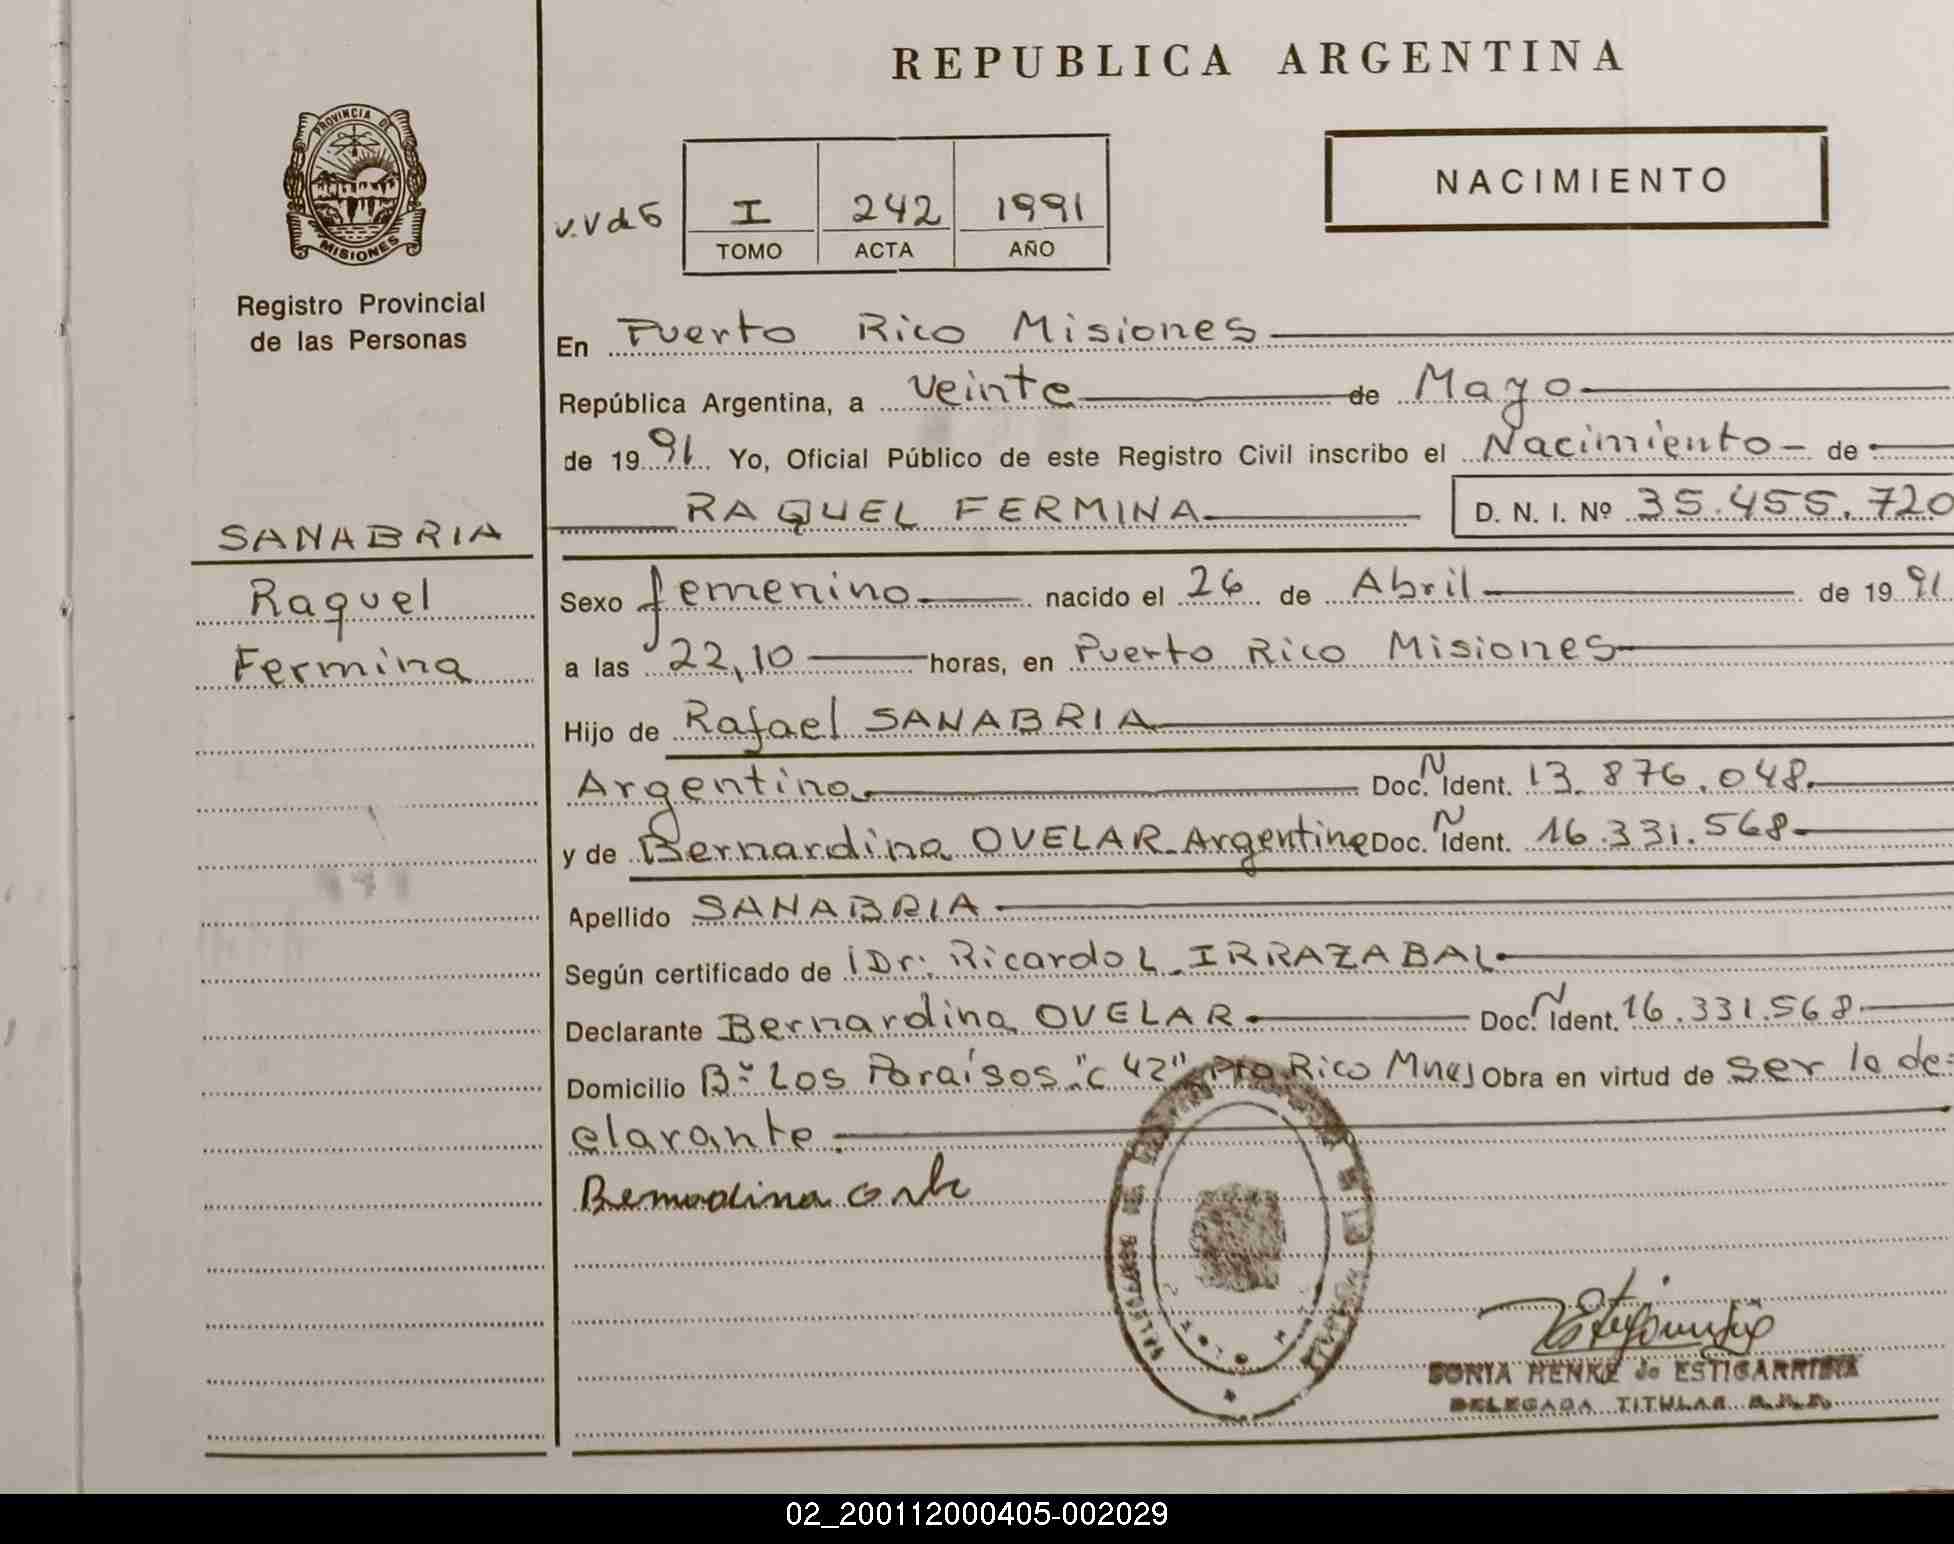 REPUBLICA ARGENTINA
PROVINCIA DE
MISIONES
Registro Provincial
de las Personas
NACIMIENTO
I 242 1991
TOMO ACTA AÑO
En Puerto Rico Misiones
República Argentina, a veinte de Mayo
de 1991 Yo, Oficial Público de este Registro Civil inscribo el Nacimiento de
RAQUEL FERMINA D. N. I. Nº 35.455.720
SANABRIA
Raquel
Fermina
Sexo femenino nacido el 26 de Abril de 1991
a las 22,10 horas, en Puerto Rico Misiones
Hijo de Rafael SANABRIA
Argentino Doc. N Ident. 13.876.048
y de Bernardina OVELAR Argentina Doc. N Ident. 16.331.568
Apellido SANABRIA
Según certificado de Dr. Ricardo L. IRRAZABAL
Declarante Bernardina OVELAR Doc. N Ident. 16.331.568
Domicilio Bº Los Paraísos "C 42" Pto Rico Mnes Obra en virtud de ser la de=
clarante
Bernardina
SONIA HENKE de ESTIGARRIBIA
DELEGADA TITULAR
02_200112000405-002029